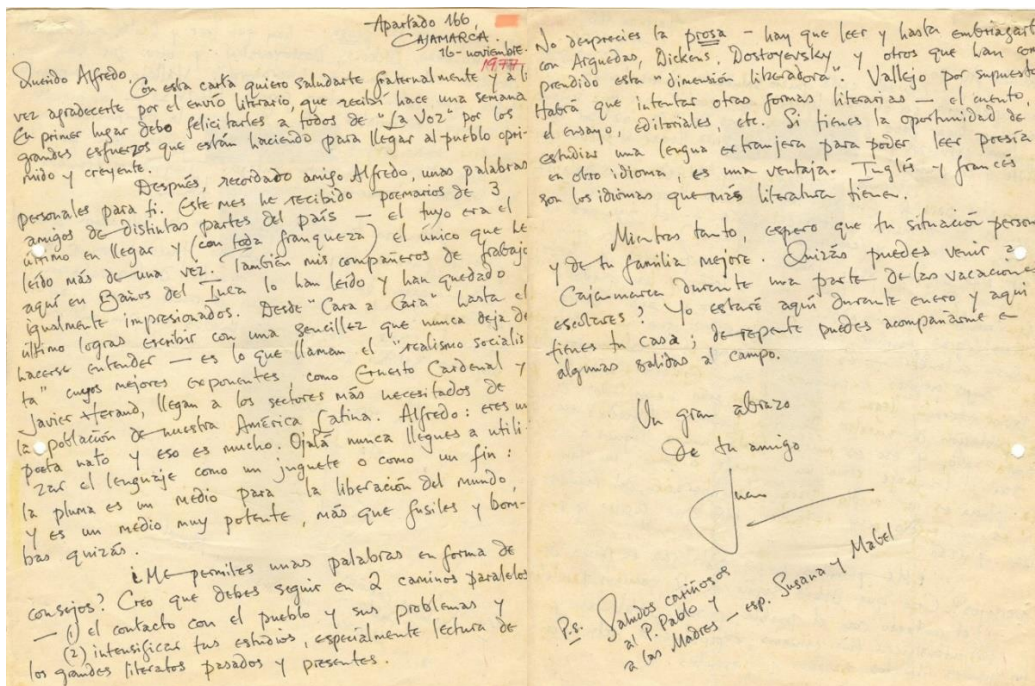 Apartado 166,
CAJAMARCA.
16-noviembre.
1977
Querido Alfredo,
Con esta carta quiero saludarte fraternalmente y a la
vez agradecerte por el envío literario, que recibí hace una semana.
En primer lugar debo felicitarles a todos de "La Voz" por los
grandes esfuerzos que están haciendo para llegar al pueblo opri-
mido y creyente.
Después, recordado amigo Alfredo, unas palabras
personales para ti. Este mes he recibido poemarios de 3
amigos de distintas partes del país — el tuyo era el
último en llegar y (con toda franqueza) el único que he
leído más de una vez. También mis compañeros de trabajo
aquí en Baños del Inca lo han leído y han quedado
igualmente impresionados. Desde "Cara a Cara" hasta el
último logras escribir con una sencillez que nunca deja de
hacerse entender — es lo que llaman el "realismo socialis-
ta" cuyos mejores exponentes, como Ernesto Cardenal y
Javier Heraud, llegan a los sectores más necesitados de
la población de nuestra América Latina. Alfredo: eres un
poeta nato y eso es mucho. Ojalá nunca llegues a utili-
zar el lenguaje como un juguete o como un fin:
la pluma es un medio para la liberación del mundo,
y es un medio muy potente, más que fusiles y bom-
bas quizás.
¿Me permites unas palabras en forma de
consejos? Creo que debes seguir en 2 caminos paralelos
— (1) el contacto con el pueblo y sus problemas y
(2) intensificar tus estudios, especialmente lectura de
los grandes literatos pasados y presentes.
No desprecies la prosa — hay que leer y hasta embriagarte
con Arguedas, Dickens, Dostoyevsky y otros que han com-
prendido esta "dimensión liberadora". Vallejo por supuesto
Habrá que intentar otras formas literarias — el cuento,
el ensayo, editoriales, etc. Si tienes la oportunidad de
estudiar una lengua extranjera para poder leer poesía
en otro idioma, es una ventaja. Inglés y francés
son los idiomas que más literatura tienen.
Mientras tanto, espero que tu situación person
y de tu familia mejore. Quizás puedes venir a
Cajamarca durante una parte de las vacaciones
escolares? Yo estaré aquí durante enero y aquí
tienes tu casa; de repente puedes acompañarme en
algunas salidas al campo.
Un gran abrazo
De tu amigo
Juan
P.s. Saludos cariñosos
al P. Pablo y
a las Madres — esp. Susana y Mabel